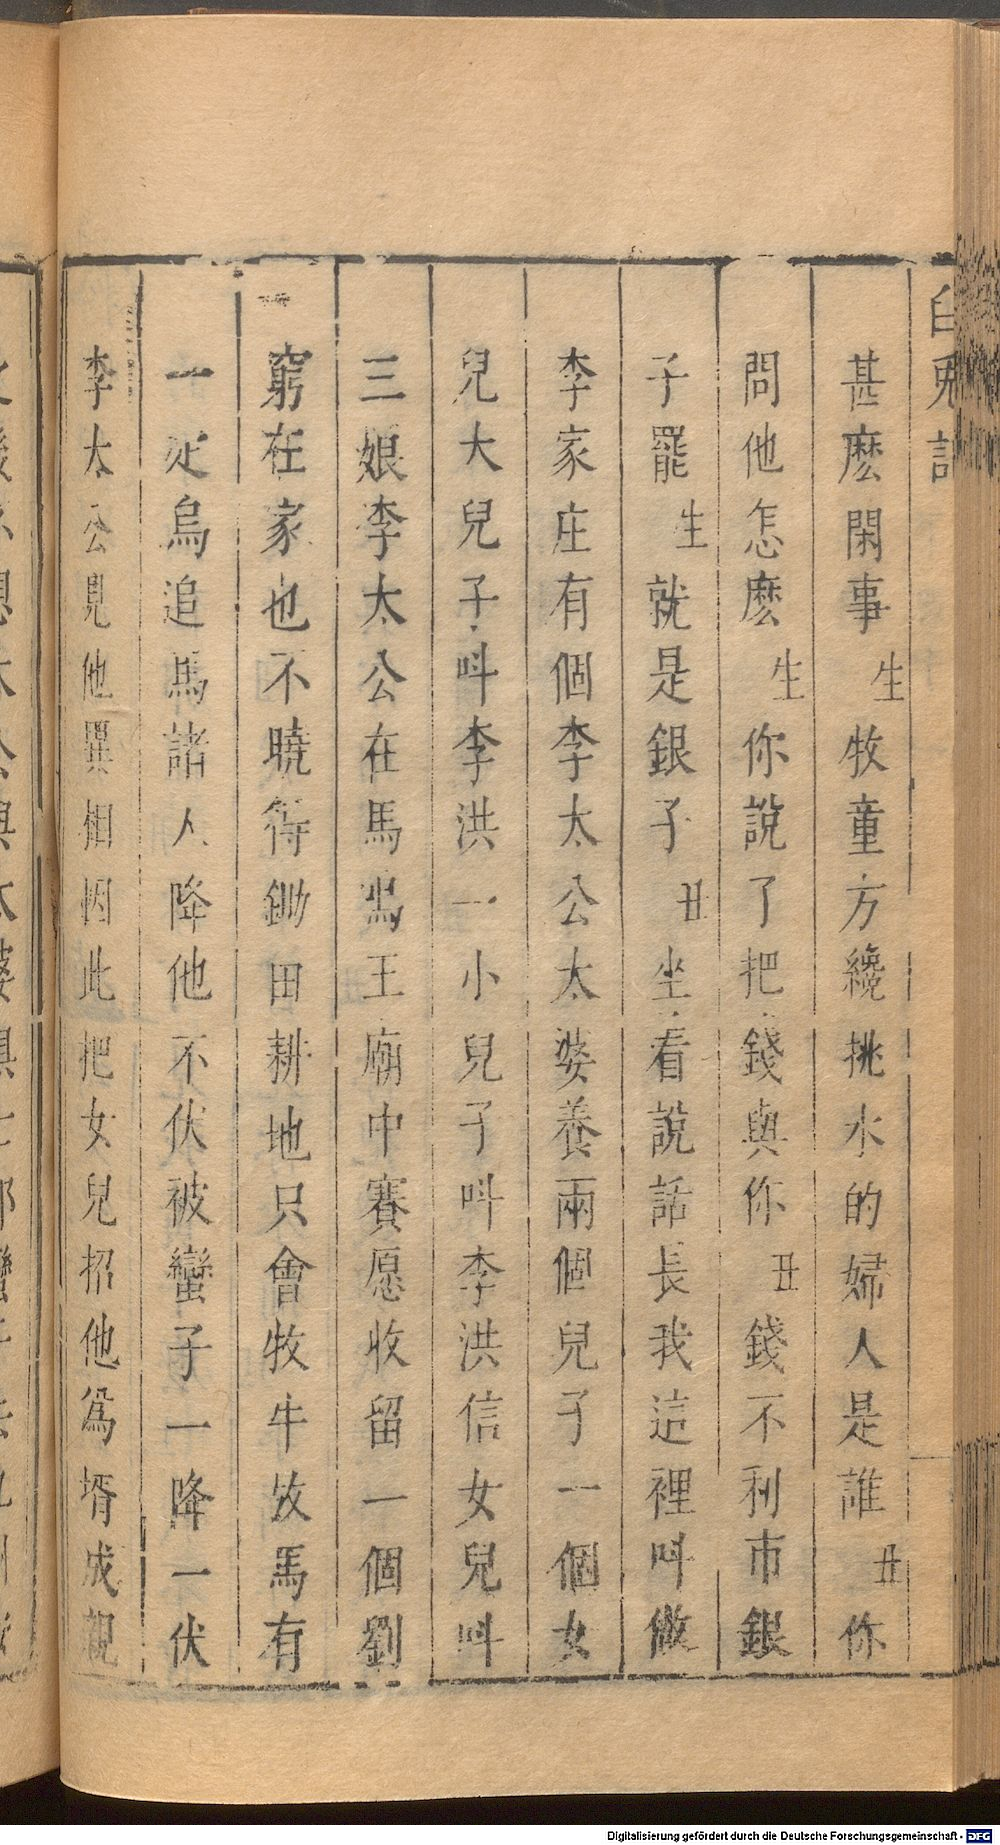 白兎記
甚麽閑事生牧童方纔挑水的婦人是誰丑你
問他怎麽生你說了把錢與你丑錢不利市銀
子罷生就是銀子丑坐看說話長我這裡叫做
李家庄有個李太公太婆養兩個兒子一個女
兒大兒子叫李洪一小兒子叫李洪信女兒叫
三娘李太公在馬鳴王廟中賽愿收留一個劉
窮在家也不曉得鋤田耕地只會牧牛放馬有
一疋烏追馬諸人降他不伏被蠻子一降一伏
李太公見他異相因此把女兒招他爲壻成親
Digitalisierung gefördert durch die Deutsche Forschungsgemeinschaft - DFG